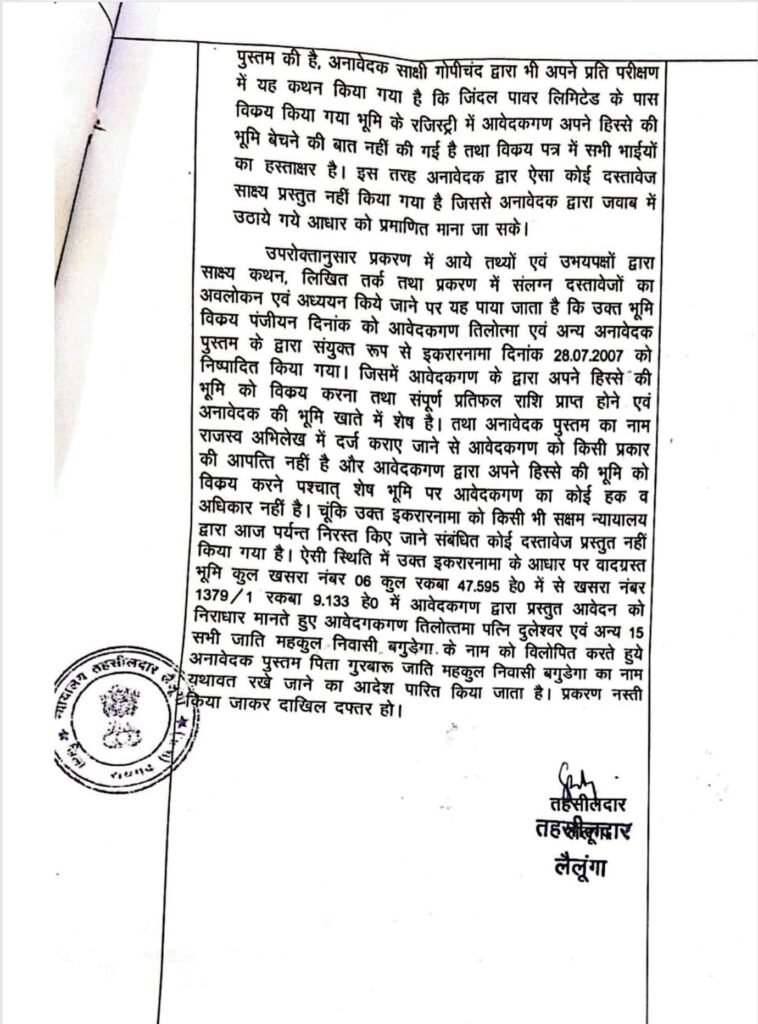 पुस्तम की है, अनावेदक साक्षी गोपीचंद द्वारा भी अपने प्रति परीक्षण
में यह कथन किया गया है कि जिंदल पावर लिमिटेड के पास
विकय किया गया भूमि के रजिस्ट्री में आवेदकगण अपने हिस्से की
भूमि बेचने की बात नहीं की गई है तथा विकय पत्र में सभी भाईयों
का हस्ताक्षर है। इस तरह अनावेदक द्वार ऐसा कोई दस्तावेज
साक्ष्य प्रस्तुत नहीं किया गया है जिससे अनावेदक द्वारा जवाब में
उठाये गये आधार को प्रमाणित माना जा सके।
उपरोक्तानुसार प्रकरण में आये तथ्यों एवं उभयपक्षों द्वारा
साक्ष्य कथन, लिखित तर्क तथा प्रकरण में संलग्न दस्तावेजों का
अवलोकन एवं अध्ययन किये जाने पर यह पाया जाता है कि उक्त भूमि
विकय पंजीयन दिनांक को आवेदकगण तिलोत्मा एवं अन्य अनावेदक
पुस्तम के द्वारा संयुक्त रूप से इकरारनामा दिनांक 28.07.2007 को
निष्पादित किया गया। जिसमें आवेदकगण के द्वारा अपने हिस्से की
भूमि को विकय करना तथा संपूर्ण प्रतिफल राशि प्राप्त होने एवं
अनावेदक की भूमि खाते में शेष है। तथा अनावेदक पुस्तम का नाम
राजस्व अभिलेख में दर्ज कराए जाने से आवेदकगण को किसी प्रकार
की आपत्ति नहीं है और आवेदकगण द्वारा अपने हिस्से की भूमि को
विकय करने पश्चात् शेष भूमि पर आवेदकगण का कोई हक व
अधिकार नहीं है। चूंकि उक्त इकरारनामा को किसी भी सक्षम न्यायालय
द्वारा आज पर्यन्त निरस्त किए जाने संबंधित कोई दस्तावेज प्रस्तुत नहीं
किया गया है। ऐसी स्थिति में उक्त इकरारनामा के आधार पर वादग्रस्त
भूमि कुल खसरा नंबर 06 कुल रकबा 47.595 हे0 में से खसरा नंबर
1379/1 रकबा 9.133 हे0 में आवेदकगण द्वारा प्रस्तुत आवेदन को
निराधार मानते हुए आवेदगकगण तिलोत्तमा पत्नि दुलेश्वर एवं अन्य 15
सभी जाति महकुल निवासी बगुडेगा के नाम को विलोपित करते हुये
अनावेदक पुस्तम पिता गुरबारू जाति महकुल निवासी बगुडेगा का नाम
यथावत रखे जाने का आदेश पारित किया जाता है। प्रकरण नस्ती
किया जाकर दाखिल दफ्तर हो।
न्यायालय तहसीलदार लैलूंगा
रायगढ़
तहसीलदार
तहसीलदार
लैलूंगा